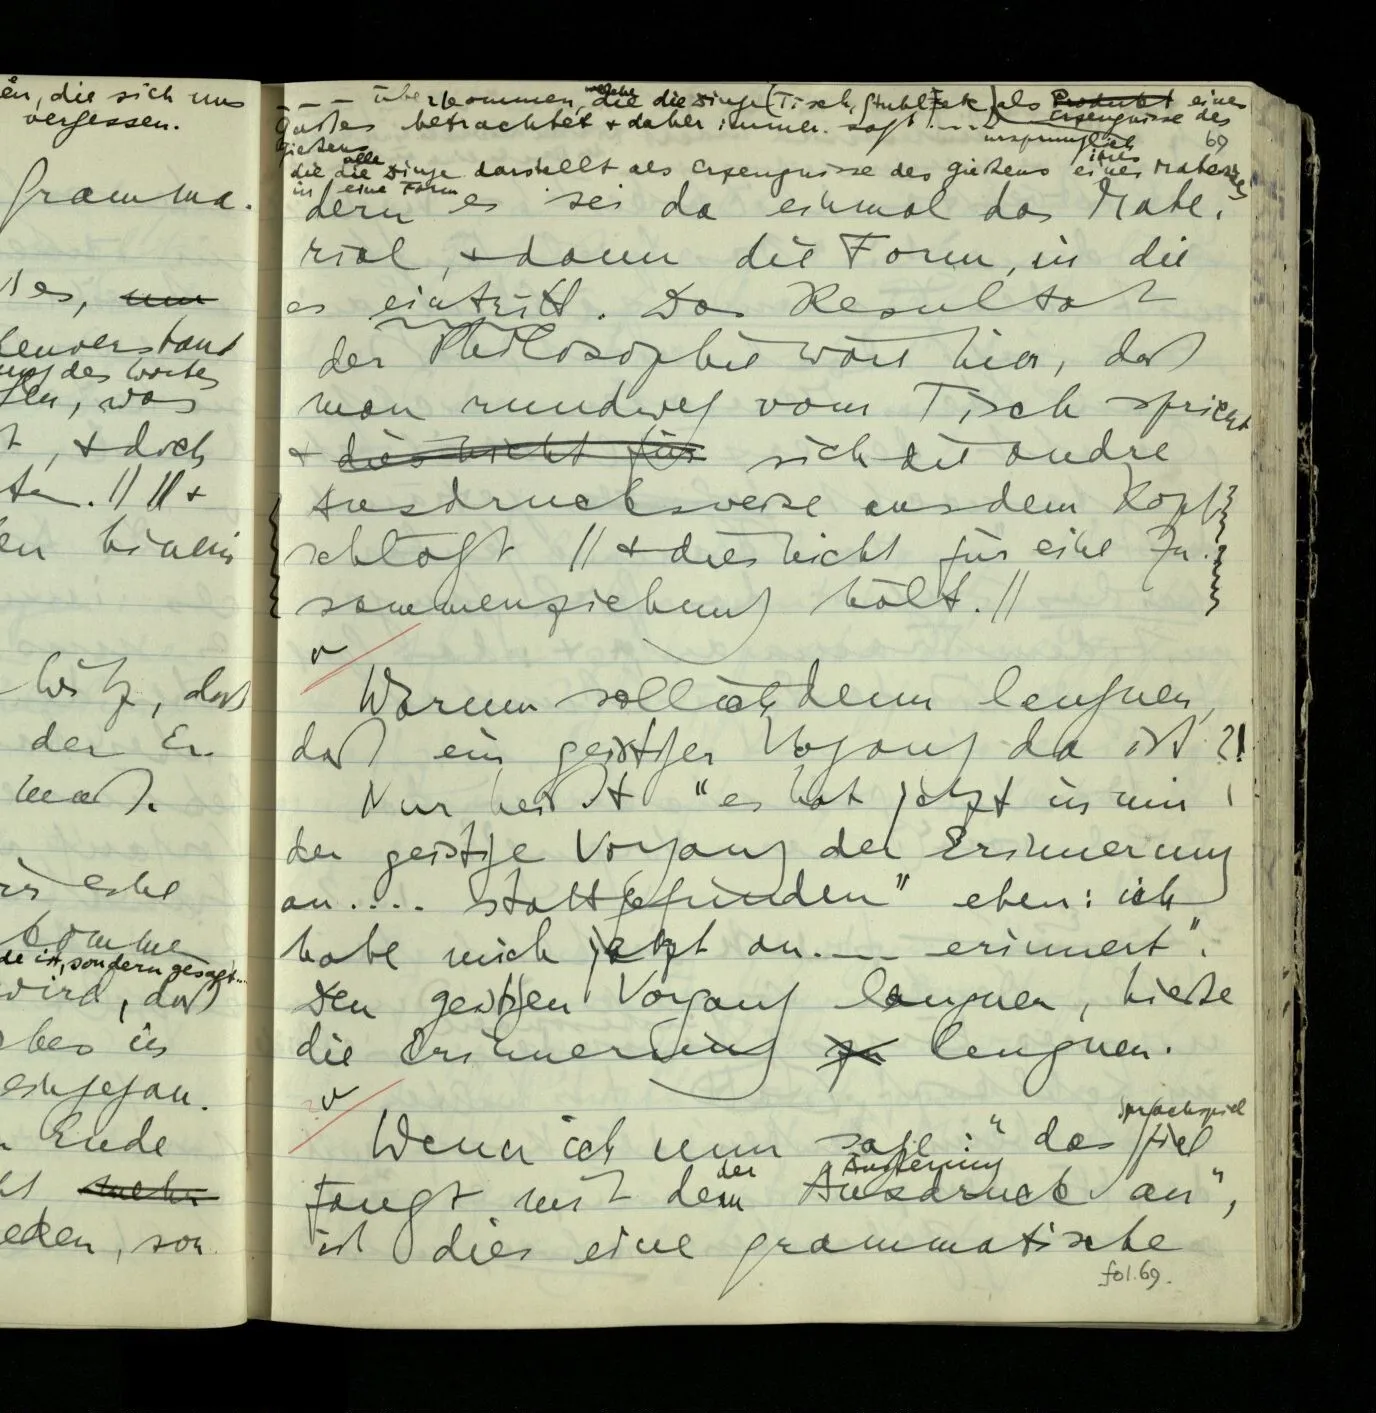 en, die sich uns
vergessen.
Gramma-
es, nur
kenverstand
des Wortes
len, was
, + doch
ten. // // +
en hinein
Witz, daß
der Er-
macht.
eine
komme
de ist, sondern gesagt...
wird, daß
in
eingegan-
Ende
mehr
eden, son-
– – – überkommen, welche die die Dinge (Tisch, Stuhl, etc) als Produkt eines
Erzeugnisse des
Gußes betrachtet + daher immer sagt ....
Gießens
ursprünglich
69
die die alle Dinge darstellt als Erzeugnisse des Gießens eines ihres Materials
in eine Form
dern es sei da einmal das Mate-
rial, + dann die Form, in die
es eintritt. Das Resultat
der Philosophie wäre hier, daß
man rundweg vom Tisch spricht
+ dies nicht für sich die andre
Ausdrucksweise aus dem Kopf
schlägt // + dies nicht für eine Zu-
sammenziehung hält. //
Warum soll ich denn leugnen,
daß ein geistiger Vorgang da ist?!
Nur heißt "es hat jetzt in mir
der geistige Vorgang der Erinnerung
an .... stattgefunden" eben: ich
habe mich jetzt an .... erinnert".
Den geistigen Vorgang leugnen, hieße
die Erinnerung zu leugnen.
Sprachspiel
Wenn ich nun sage: "das Spiel
der Äußerung
fängt mit dem Ausdruck an",
ist dies eine grammatische
fol. 69.